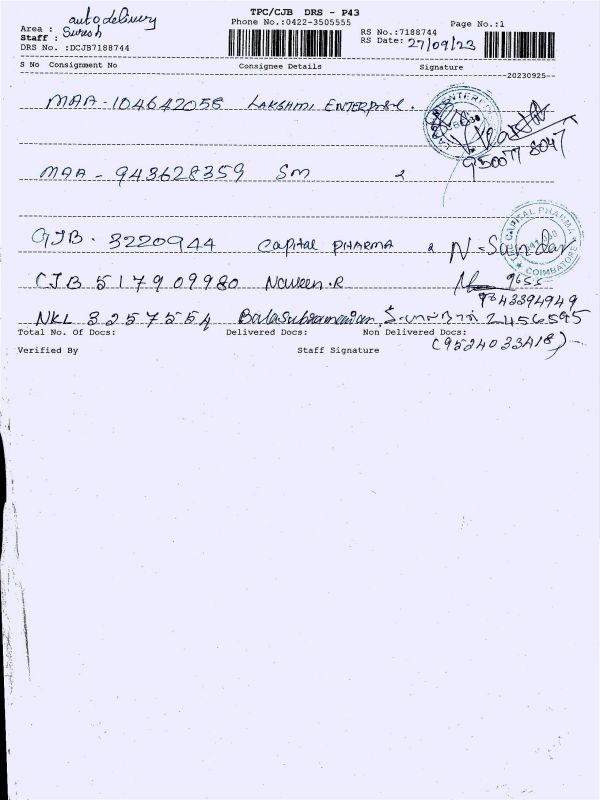 TPC/CJB DRS - P43
Area : auto delivery Phone No.:0422-3505555 Page No.:1
Staff : Suresh RS No.:7188744
DRS No. :DCJB7188744 RS Date: 27/09/23
S No Consignment No Consignee Details Signature
20230925
MAA - 104642058 LAKSHMI ENTERPRISE.
95007 78047
MAA - 943628359 SM 2
CJB - 3220944 Capital PHARMA & N-Sundar
CAPITAL PHARMA
COIMBATORE
CJB 517909980 Naveen.R 9655
NKL 3257554 Balasubramanian, 2456595
Total No. Of Docs: Delivered Docs: Non Delivered Docs:
(9524033418)
Verified By Staff Signature